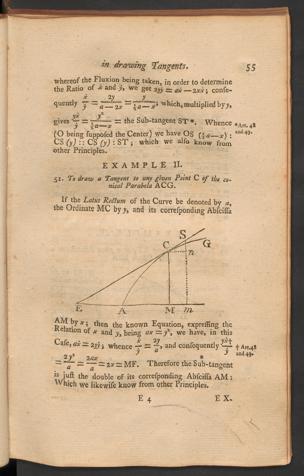 in drawing Tangents. 55
whereof the Fluxion being taken, in order to determine
the Ratio of ẋ and ẏ, we get 2yẏ = aẋ — 2xẋ; conse-
quently ẋ/ẏ = 2y/(a — 2x) = y/(½a — x); which, multiplied by y,
gives yẋ/ẏ = y²/(½a — x) = the Sub-tangent ST*. Whence * Art. 48
(O being supposed the Center) we have OS (½a — x) : and 49.
CS (y) :: CS (y) : ST; which we also know from
other Principles.
EXAMPLE II.
51. To draw a Tangent to any given Point C of the co-
nical Parabola ACG.
If the Latus Rectum of the Curve be denoted by a,
the Ordinate MC by y, and its corresponding Abscissa
S
G
C
n
E A M m
AM by x; then the known Equation, expressing the
Relation of x and y, being ax = y², we have, in this
Case, aẋ = 2yẏ; whence ẋ/ẏ = 2y/a, and consequently yẋ/ẏ † † Art. 48
and 49.
= 2y²/a = 2ax/a = 2x = MF. Therefore the Sub-tangent
is just the double of its corresponding Abscissa AM:
Which we likewise know from other Principles.
E 4 EX.